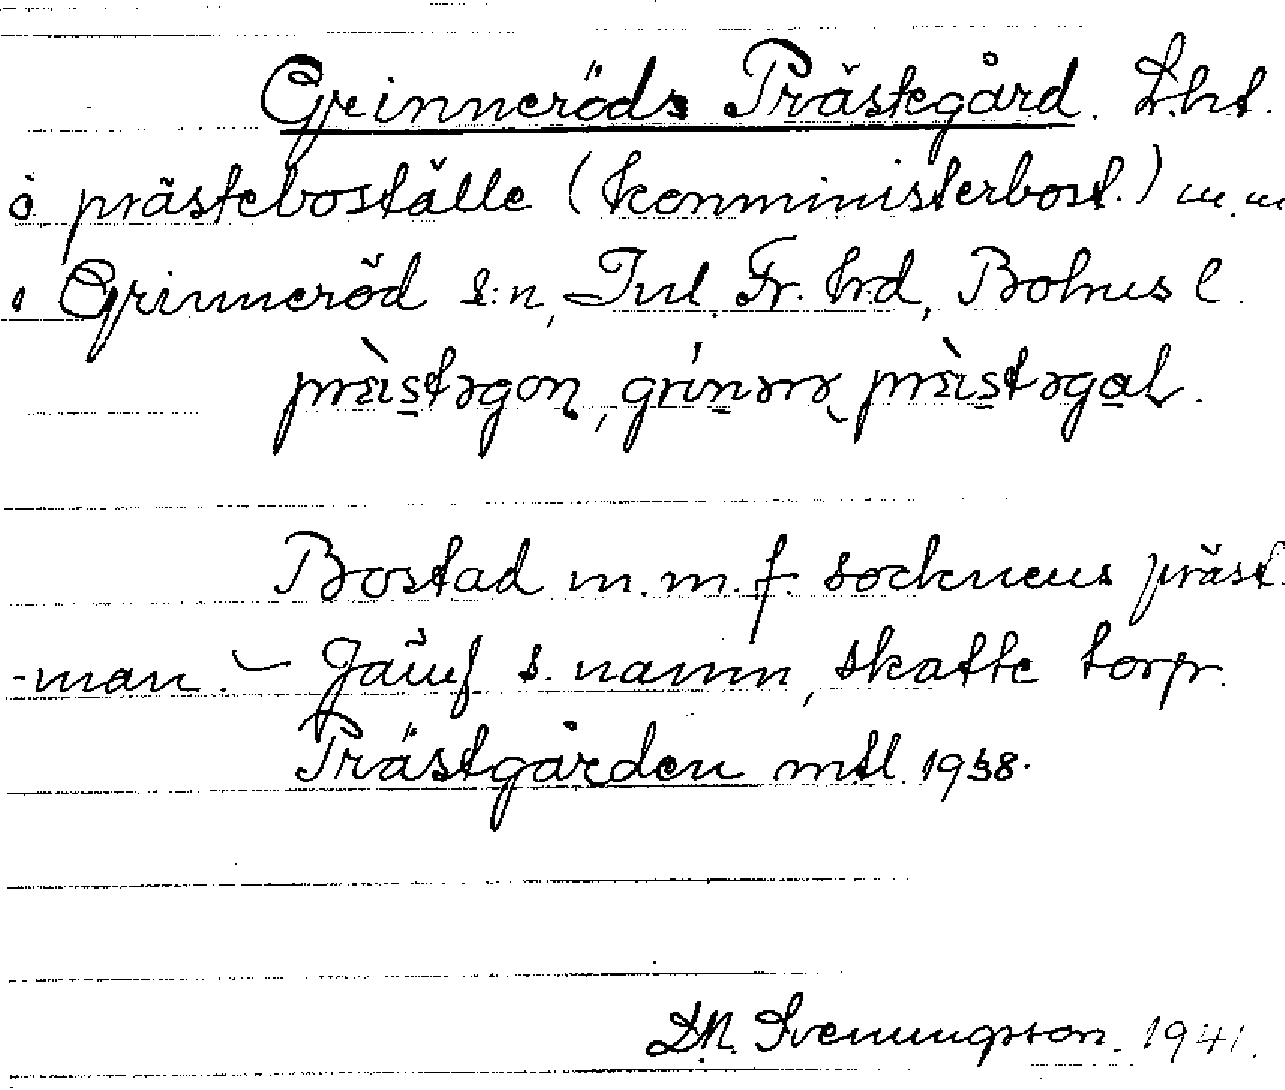 Grinneröds Prästegård. Lht.
å prästeboställe (komministerbost.) m.m
i Grinneröd s:n, Inl. Fr. hrd, Bohus l.
prɛ̀istəgoɳ, grínərœ prɛ̀istəgɑɫ.
Bostad m.m. f. socknens präst-
-man. – Jämf s. namn, skatte torp.
Prästgården mtl. 1938.
D.N. Svenungsson. 1941.